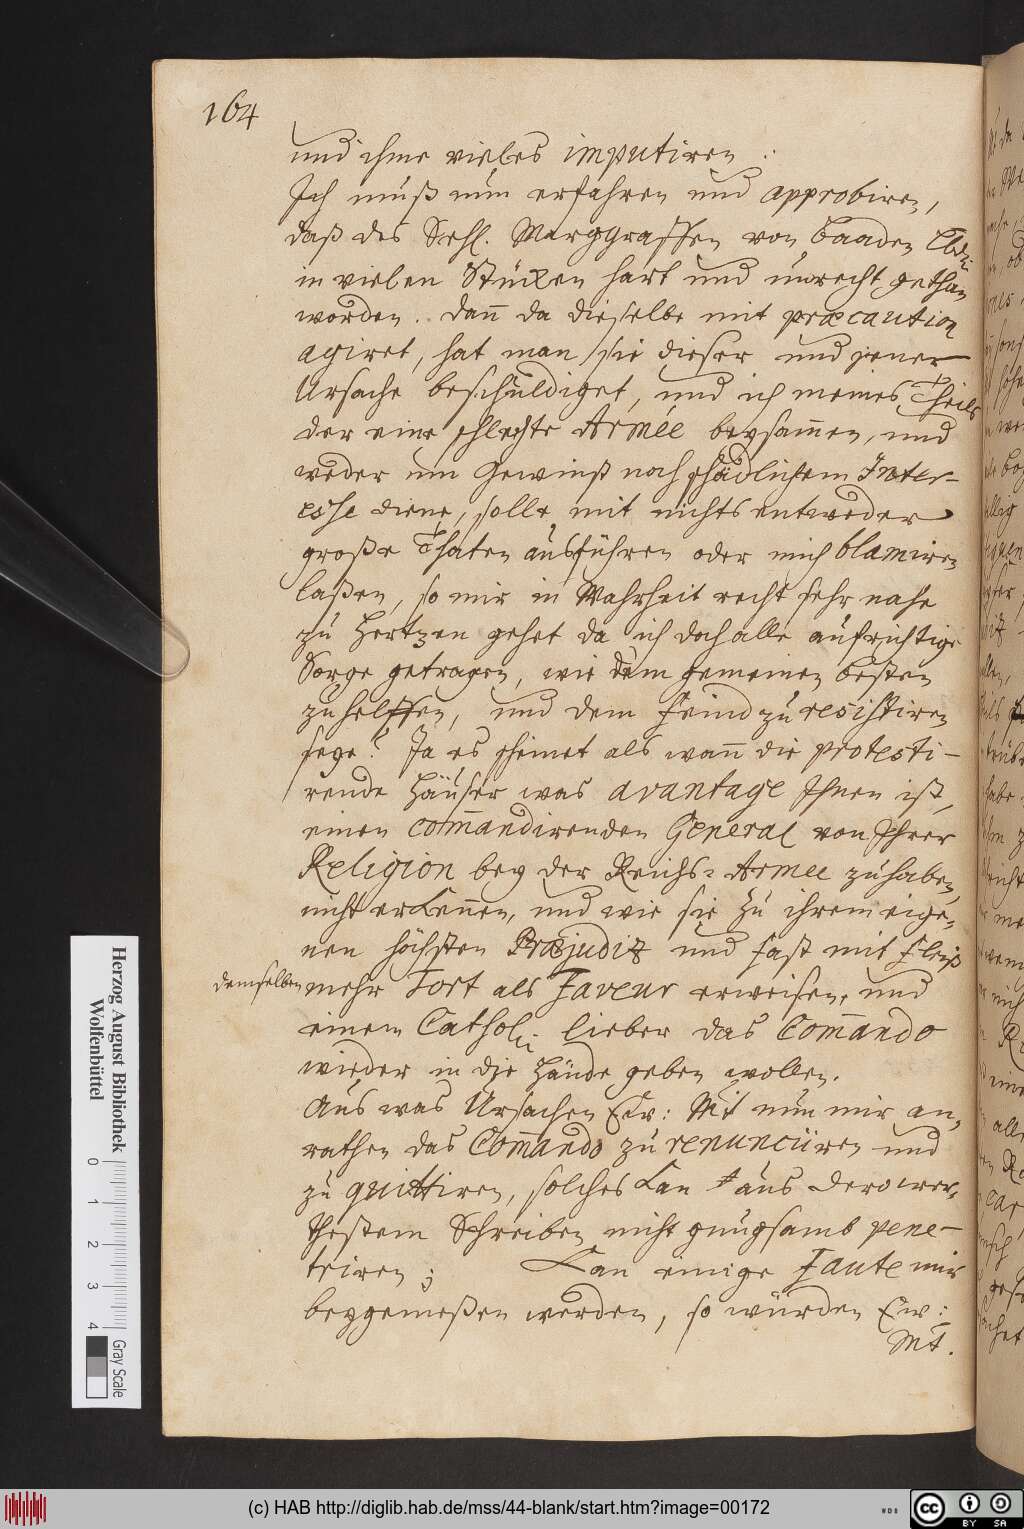 164
und ihme vieles imputiren :
Ich muß nun erfahren und approbiren,
daß des Sehl. Marggraffen von Baaden Lbd.
in vielen Stücken hart und unrecht gethan
worden. dann da dieselbe mit præcaution
agiret, hat man sie dieser und jener
Ursache beschuldiget, und ich meines Theils
der eine schlechte Armée beysam̄en, und
weder um Gewinst noch schädlichem Inter-
esse diene, solle mit nichts entweder
große Thaten ausführen oder mich blamiren
laßen, so mir in Wahrheit recht sehr nahe
zu Hertzen gehet da ich doch alle aufrichtige
Sorge getragen, wie dem gemeinen besten
zu helffen, und dem Feind zu resistiren
seye! Ja es scheinet als wan̄ die protesti-
rende Häuser was avantage Ihnen ist,
einen com̄andirenden General von Ihrer
Religion bey der Reichs-Armee zu haben,
nicht erkennen, und wie sie zu ihrem eige-
nen höchsten Præjudiz und fast mit Fleiß
demselben mehr Tort als Faveur erweisen, und
einem Catholi lieber das Com̄ando
wieder in die Hände geben wollen.
Aus was Ursachen Ew: Mt nun mir an-
rathen das Com̄ando zu renunciiren und
zu quittiren, solches kan aus dero wer-
thestem Schreiben nicht gnugsamb pene-
triren; Kan einige Faute mir
beygemeßen werden, so würden Ew:
Mt.
Herzog August Bibliothek
Wolfenbüttel
0 1 2 3 4
Gray Scale
(c) HAB http://diglib.hab.de/mss/44-blank/start.htm?image=00172
WDB
cc BY SA